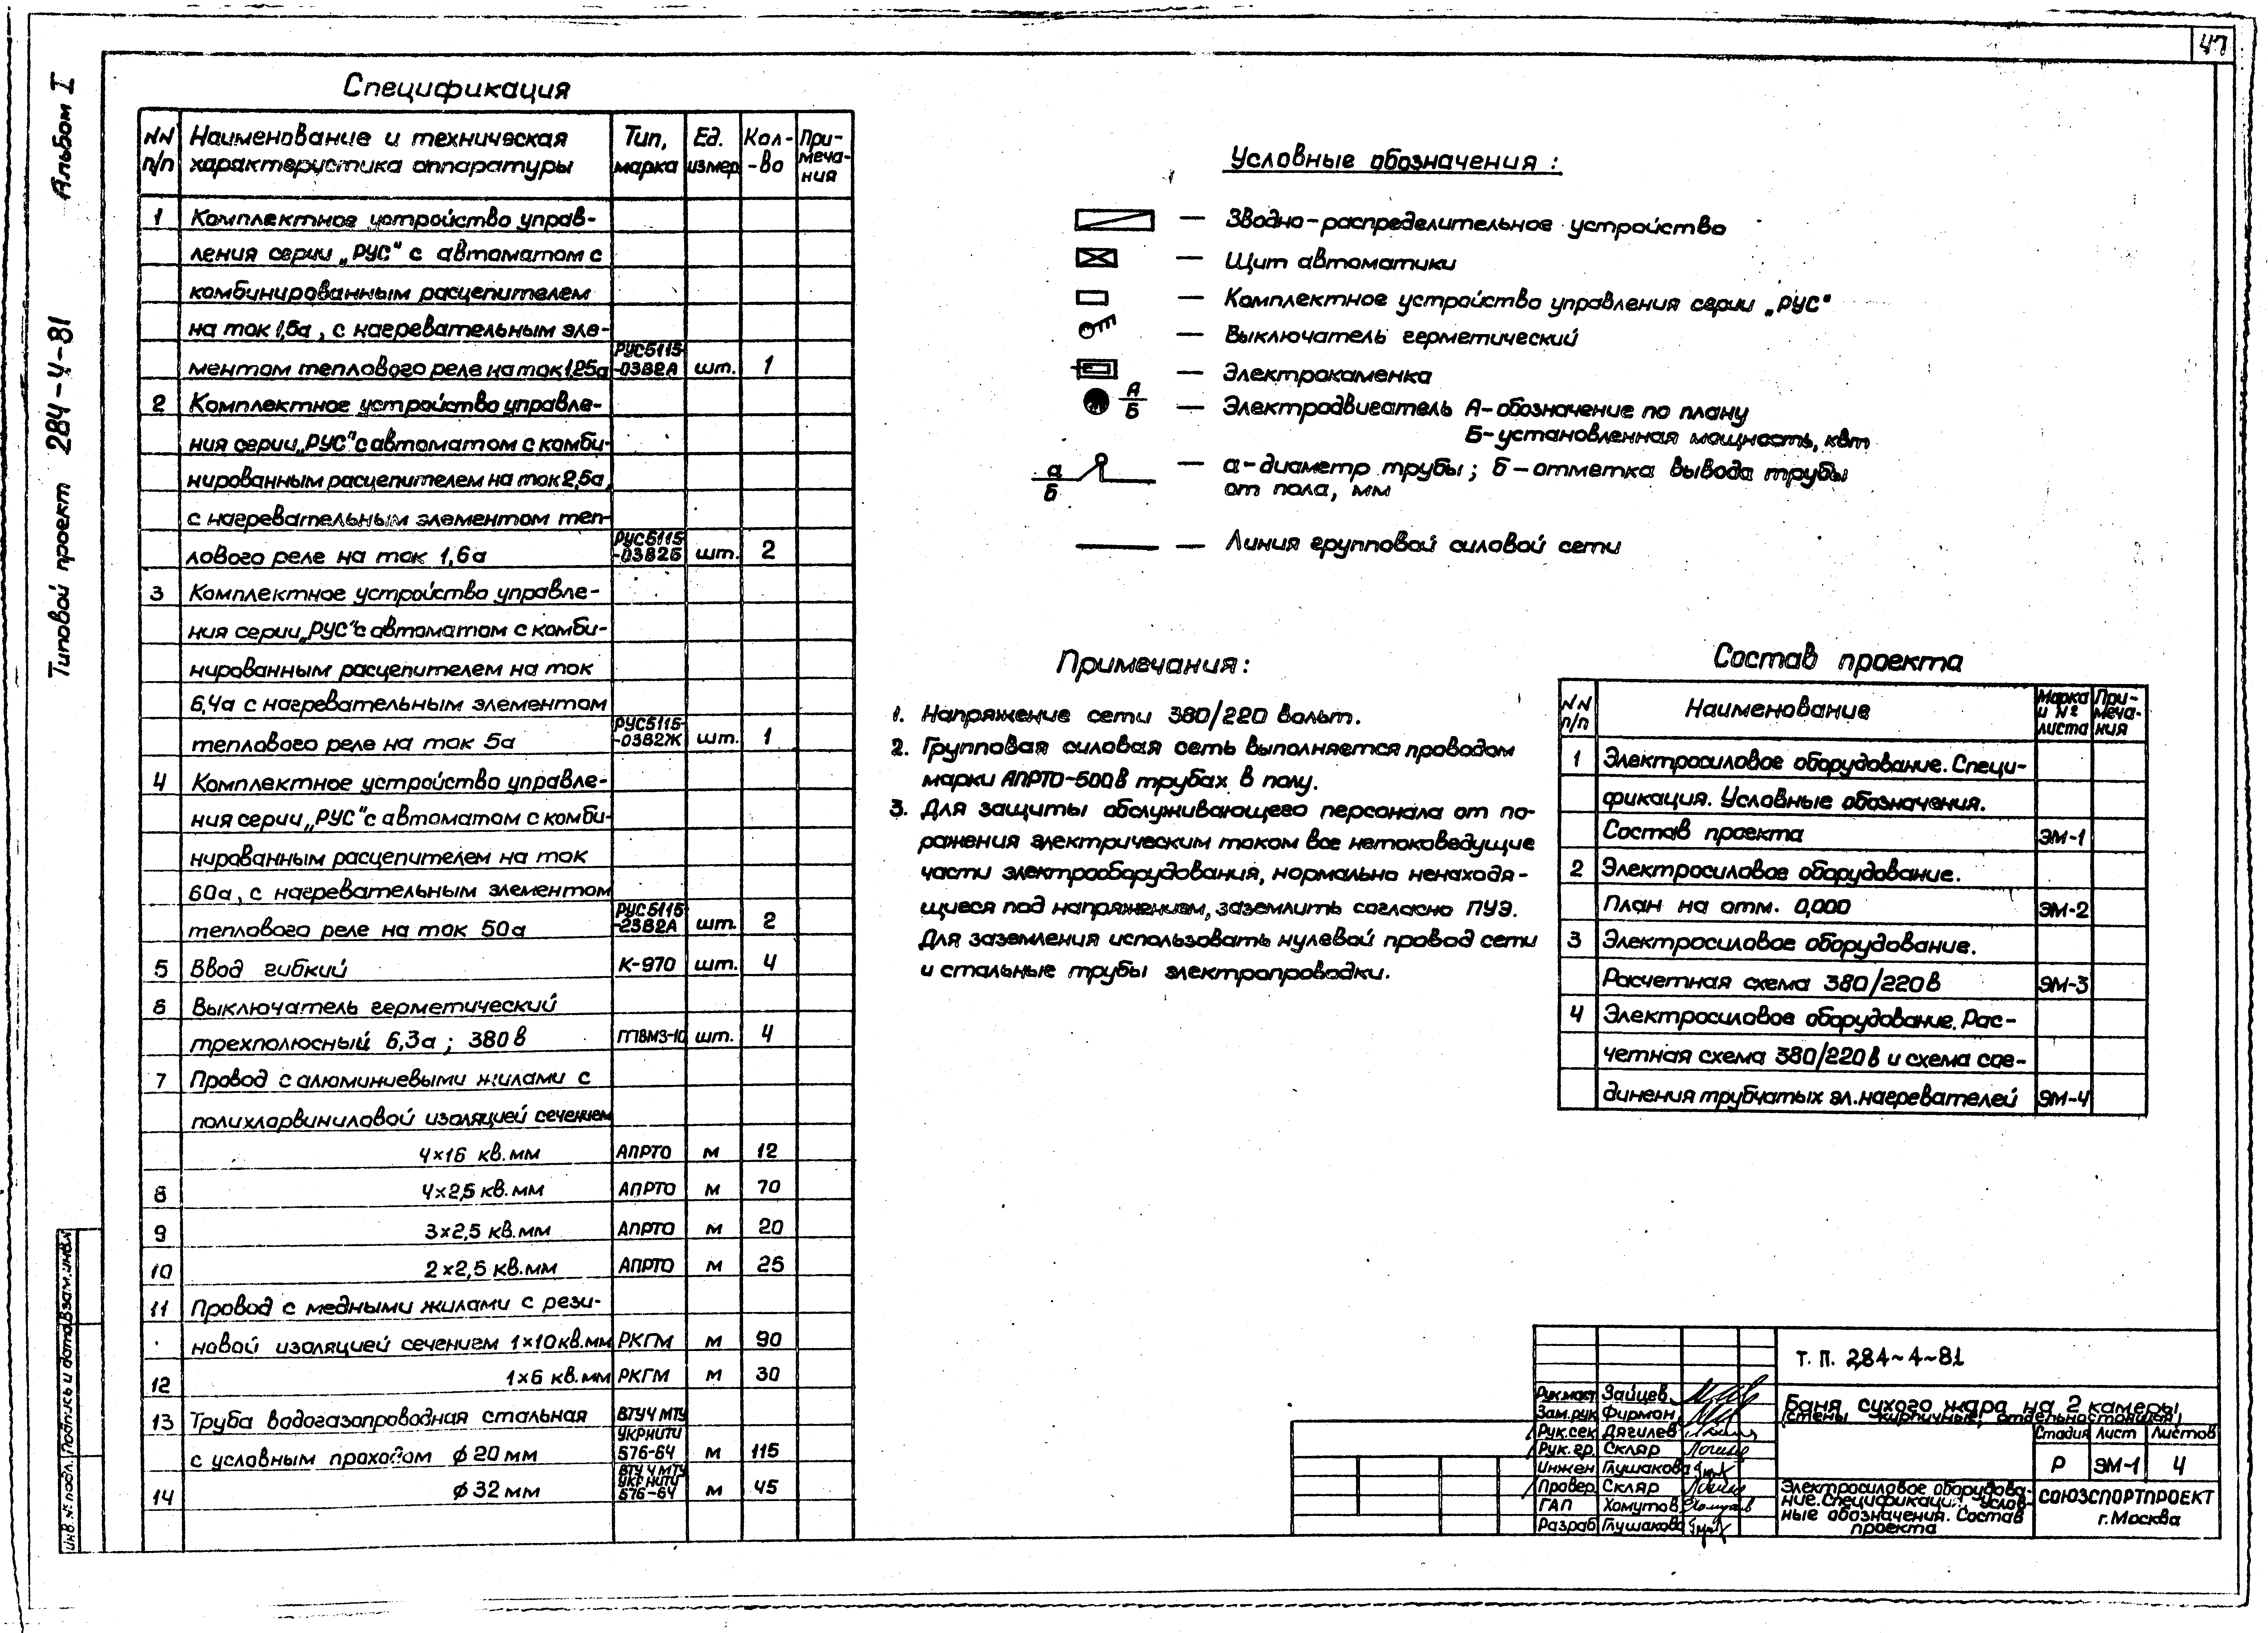 47
Альбом I
Типовой проект 284-4-81
Спецификация
NN п/п
Наименование и техническая характеристика аппаратуры
Тип, марка
Ед. измер.
Кол-во
Примечания
1 Комплектное устройство управ-
ления серии „РУС" с автоматом с
комбинированным расцепителем
на ток 1,5а, с нагревательным эле-
ментом теплового реле на ток 1,25а РУС5115-03В2А шт. 1
2 Комплектное устройство управле-
ния серии „РУС" с автоматом с комби-
нированным расцепителем на ток 2,5а,
с нагревательным элементом теп-
лового реле на ток 1,6а РУС5115-03В2Б шт. 2
3 Комплектное устройство управле-
ния серии „РУС" с автоматом с комби-
нированным расцепителем на ток
6,4а с нагревательным элементом
теплового реле на ток 5а РУС5115-03В2Ж шт. 1
4 Комплектное устройство управле-
ния серии „РУС" с автоматом с комби-
нированным расцепителем на ток
60а, с нагревательным элементом
теплового реле на ток 50а РУС5115-23В2А шт. 2
5 Ввод гибкий К-970 шт. 4
6 Выключатель герметический
трехполюсный 6,3а; 380в ГПВМ3-10 шт. 4
7 Провод с алюминиевыми жилами с
полихлорвиниловой изоляцией сечением
4×16 кв.мм АПРТО м 12
8 4×2,5 кв.мм АПРТО м 70
9 3×2,5 кв.мм АПРТО м 20
10 2×2,5 кв.мм АПРТО м 25
11 Провод с медными жилами с рези-
новой изоляцией сечением 1×10 кв.мм РКГМ м 90
12 1×6 кв.мм РКГМ м 30
13 Труба водогазопроводная стальная ВТУЧМТУ
с условным проходом ⌀ 20 мм УКРНИТИ 576-64 м 115
14 ⌀ 32 мм ВТУ Ч МТУ УКРНИТИ 576-64 м 45
Условные обозначения:
— Вводно-распределительное устройство
— Щит автоматики
— Комплектное устройство управления серии „РУС"
— Выключатель герметический
— Электрокаменка
А/Б — Электродвигатель А-обозначение по плану
Б-установленная мощность, квт
а/Б — а-диаметр трубы; Б-отметка вывода трубы
от пола, мм
— Линия групповой силовой сети
Примечания:
1. Напряжение сети 380/220 вольт.
2. Групповая силовая сеть выполняется проводом
марки АПРТО-500 в трубах в полу.
3. Для защиты обслуживающего персонала от по-
ражения электрическим током все нетоковедущие
части электрооборудования, нормально ненаходя-
щиеся под напряжением, заземлить согласно ПУЭ.
Для заземления использовать нулевой провод сети
и стальные трубы электропроводки.
Состав проекта
NN п/п
Наименование
Марка и № листа
Примечания
1 Электросиловое оборудование. Специ-
фикация. Условные обозначения.
Состав проекта ЭМ-1
2 Электросиловое оборудование.
План на отм. 0,000 ЭМ-2
3 Электросиловое оборудование.
Расчетная схема 380/220в ЭМ-3
4 Электросиловое оборудование. Рас-
четная схема 380/220в и схема сое-
динения трубчатых эл.нагревателей ЭМ-4
Т. П. 284-4-81
Баня сухого жара на 2 камеры
(стены кирпичные, отдельностоящая)
Рук.маст Зайцев
Зам.рук Фирман
Рук.сек Дягилев
Рук. гр. Скляр
Инжен Глушакова
Провер. Скляр
ГАП Хомутов
Разраб Глушакова
Стадия Лист Листов
Р ЭМ-1 4
Электросиловое оборудова-
ние. Спецификация. Услов-
ные обозначения. Состав
проекта
СОЮЗСПОРТПРОЕКТ
г. Москва
Инв.№ подл. Подпись и дата Взам.инв.№